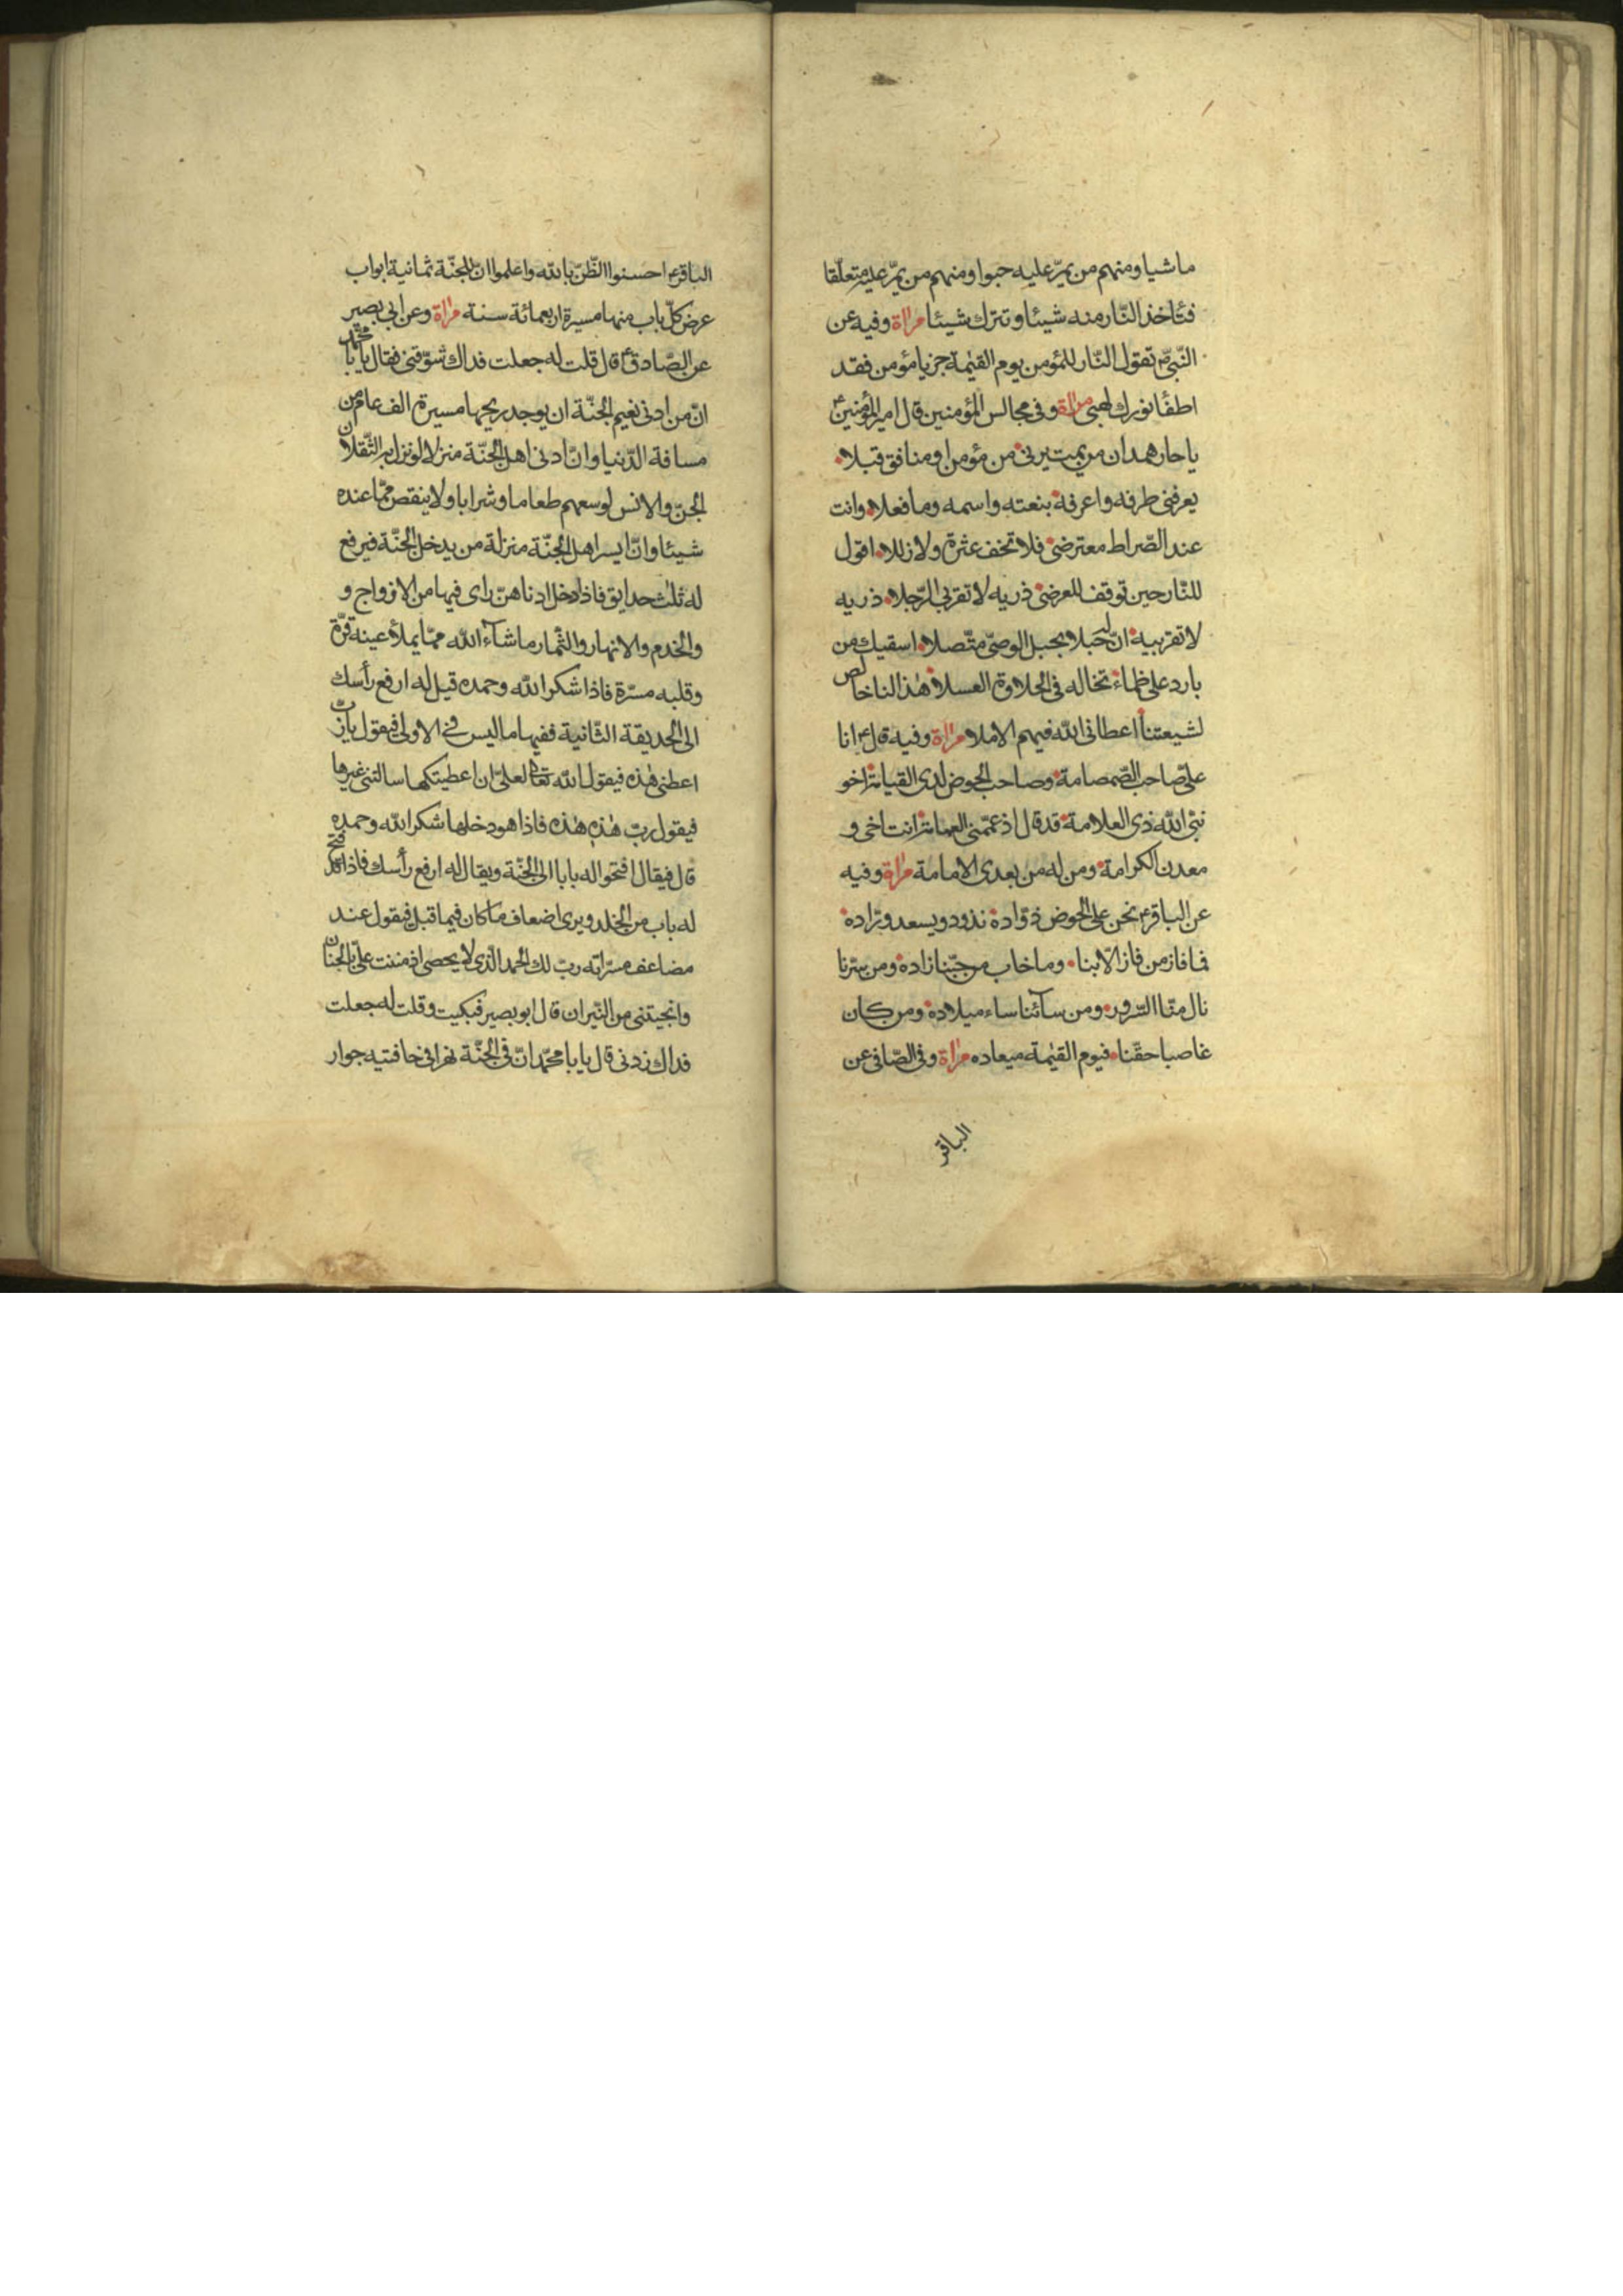 ماشيا ومنهم من يمرّ عليه حبوا ومنهم من يمرّ عليه متعلّقا
فتأخذ النّار منه شيئا وتترك شيئا مرآة وفيه عن
النّبيّ ص تقول النّار للمؤمن يوم القيٰمة جز يا مؤمن فقد
اطفأ نورك لهبي مرآة وفي مجالس المؤمنين قال امير المؤمنين ع
يا حار همدان من يمت يرني من مؤمن او منافق قبلا
يعرفني طرفه واعرفه بنعته واسمه وما فعلا وانت
عند الصّراط معترضي فلا تخف عثرة ولا زللا اقول
للنّار حين توقف للعرض ذريه لا تقربي الرّجلا ذريه
لا تقربيه انّ له حبلا بحبل الوصيّ متّصلا اسقيك من
بارد على ظماء تخاله في الحلاوة العسلا هٰذا لنا خالص
لشيعتنا اعطاني اللّه فيهم الاملا مرآة وفيه قال ع انا
عليّ صاحب الصّمصامة وصاحب الحوض لدى القيامة اخو
نبيّ اللّه ذي العلامة قد قال اذ عمّمني العمامة انت اخي و
معدن الكرامة ومن له من بعدي الامامة مرآة وفيه
عن الباقر ع نحن على الحوض ذوّاده نذود ويسعد ورّاده
فما فاز من فاز الّا بنا وما خاب من حبّنا زاده ومن سرّنا
نال منّا السّرور ومن سآئنا ساء ميلاده ومن كان
غاصبا حقّنا فيوم القيٰمة ميعاده مرآة وفي الصّافي عن
الباقر
الباقر ع احسنوا الظّنّ باللّه واعلموا انّ للجنّة ثمانية ابواب
عرض كلّ باب منها مسيرة اربعمائة سنة مرآة وعن ابي بصير
عن الصّادق ع قال قلت له جعلت فداك شوّقني فقال يا با محمّد
انّ من ادنى نعيم الجنّة ان يوجد ريحها مسيرة الف عام من
مسافة الدّنيا وانّ ادنى اهل الجنّة منزلا لو نزل به الثّقلان
الجنّ والانس لوسعهم طعاما وشرابا ولا ينقص ممّا عنده
شيئا وانّ ايسر اهل الجنّة منزلة من يدخل الجنّة فيرفع
له ثلٰث حدايق فاذا دخل ادناهنّ راى فيها من الازواج و
والخدم والانهار والثّمار ما شآء اللّه ممّا يملأ عينه قرّة
وقلبه مسرّة فاذا شكر اللّه وحمده قيل له ارفع رأسك
الى الحديقة الثّانية ففيها ما ليس في الاولى فيقول يا ربّ
اعطني هٰذه فيقول اللّه تعالى لعلّي ان اعطيتكها سالتني غيرها
فيقول ربّ هٰذه هٰذه فاذا هو دخلها شكر اللّه وحمده
قال فيقال افتحوا له بابا الى الجنّة ويقال له ارفع رأسك فاذا قد فتح
له باب من الخلد ويرى اضعاف ما كان فيما قبل فيقول عند
مضاعف مسرّاته ربّ لك الحمد الّذي لا يحصى اذ مننت عليّ بالجنان
وانجيتني من النّيران قال ابو بصير فبكيت وقلت له جعلت
فداك زدني قال يا با محمّد انّ في الجنّة نهرا في حافتيه جوار